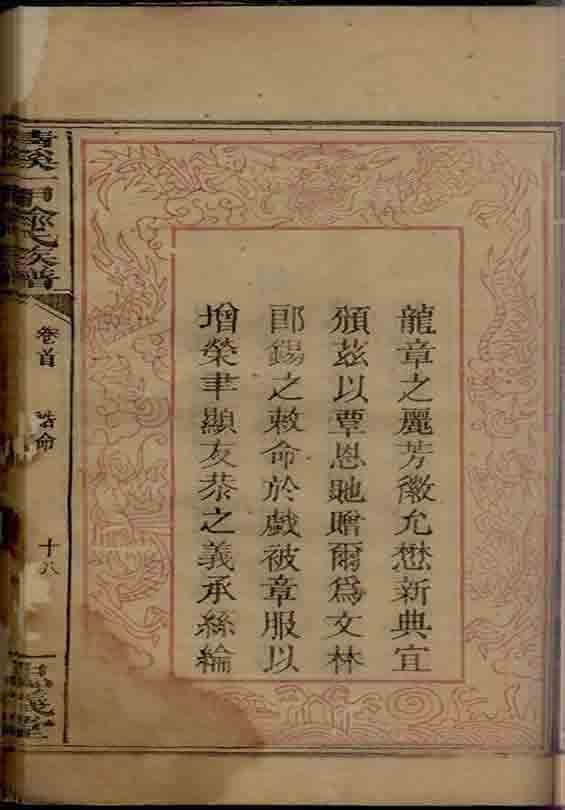 龍章之麗芳徽允懋新典宜
頒茲以覃恩貤贈爾為文林
郎錫之敕命於戲被章服以
增榮聿顯友恭之義承絲綸
氏族譜
卷首
誥命
十八